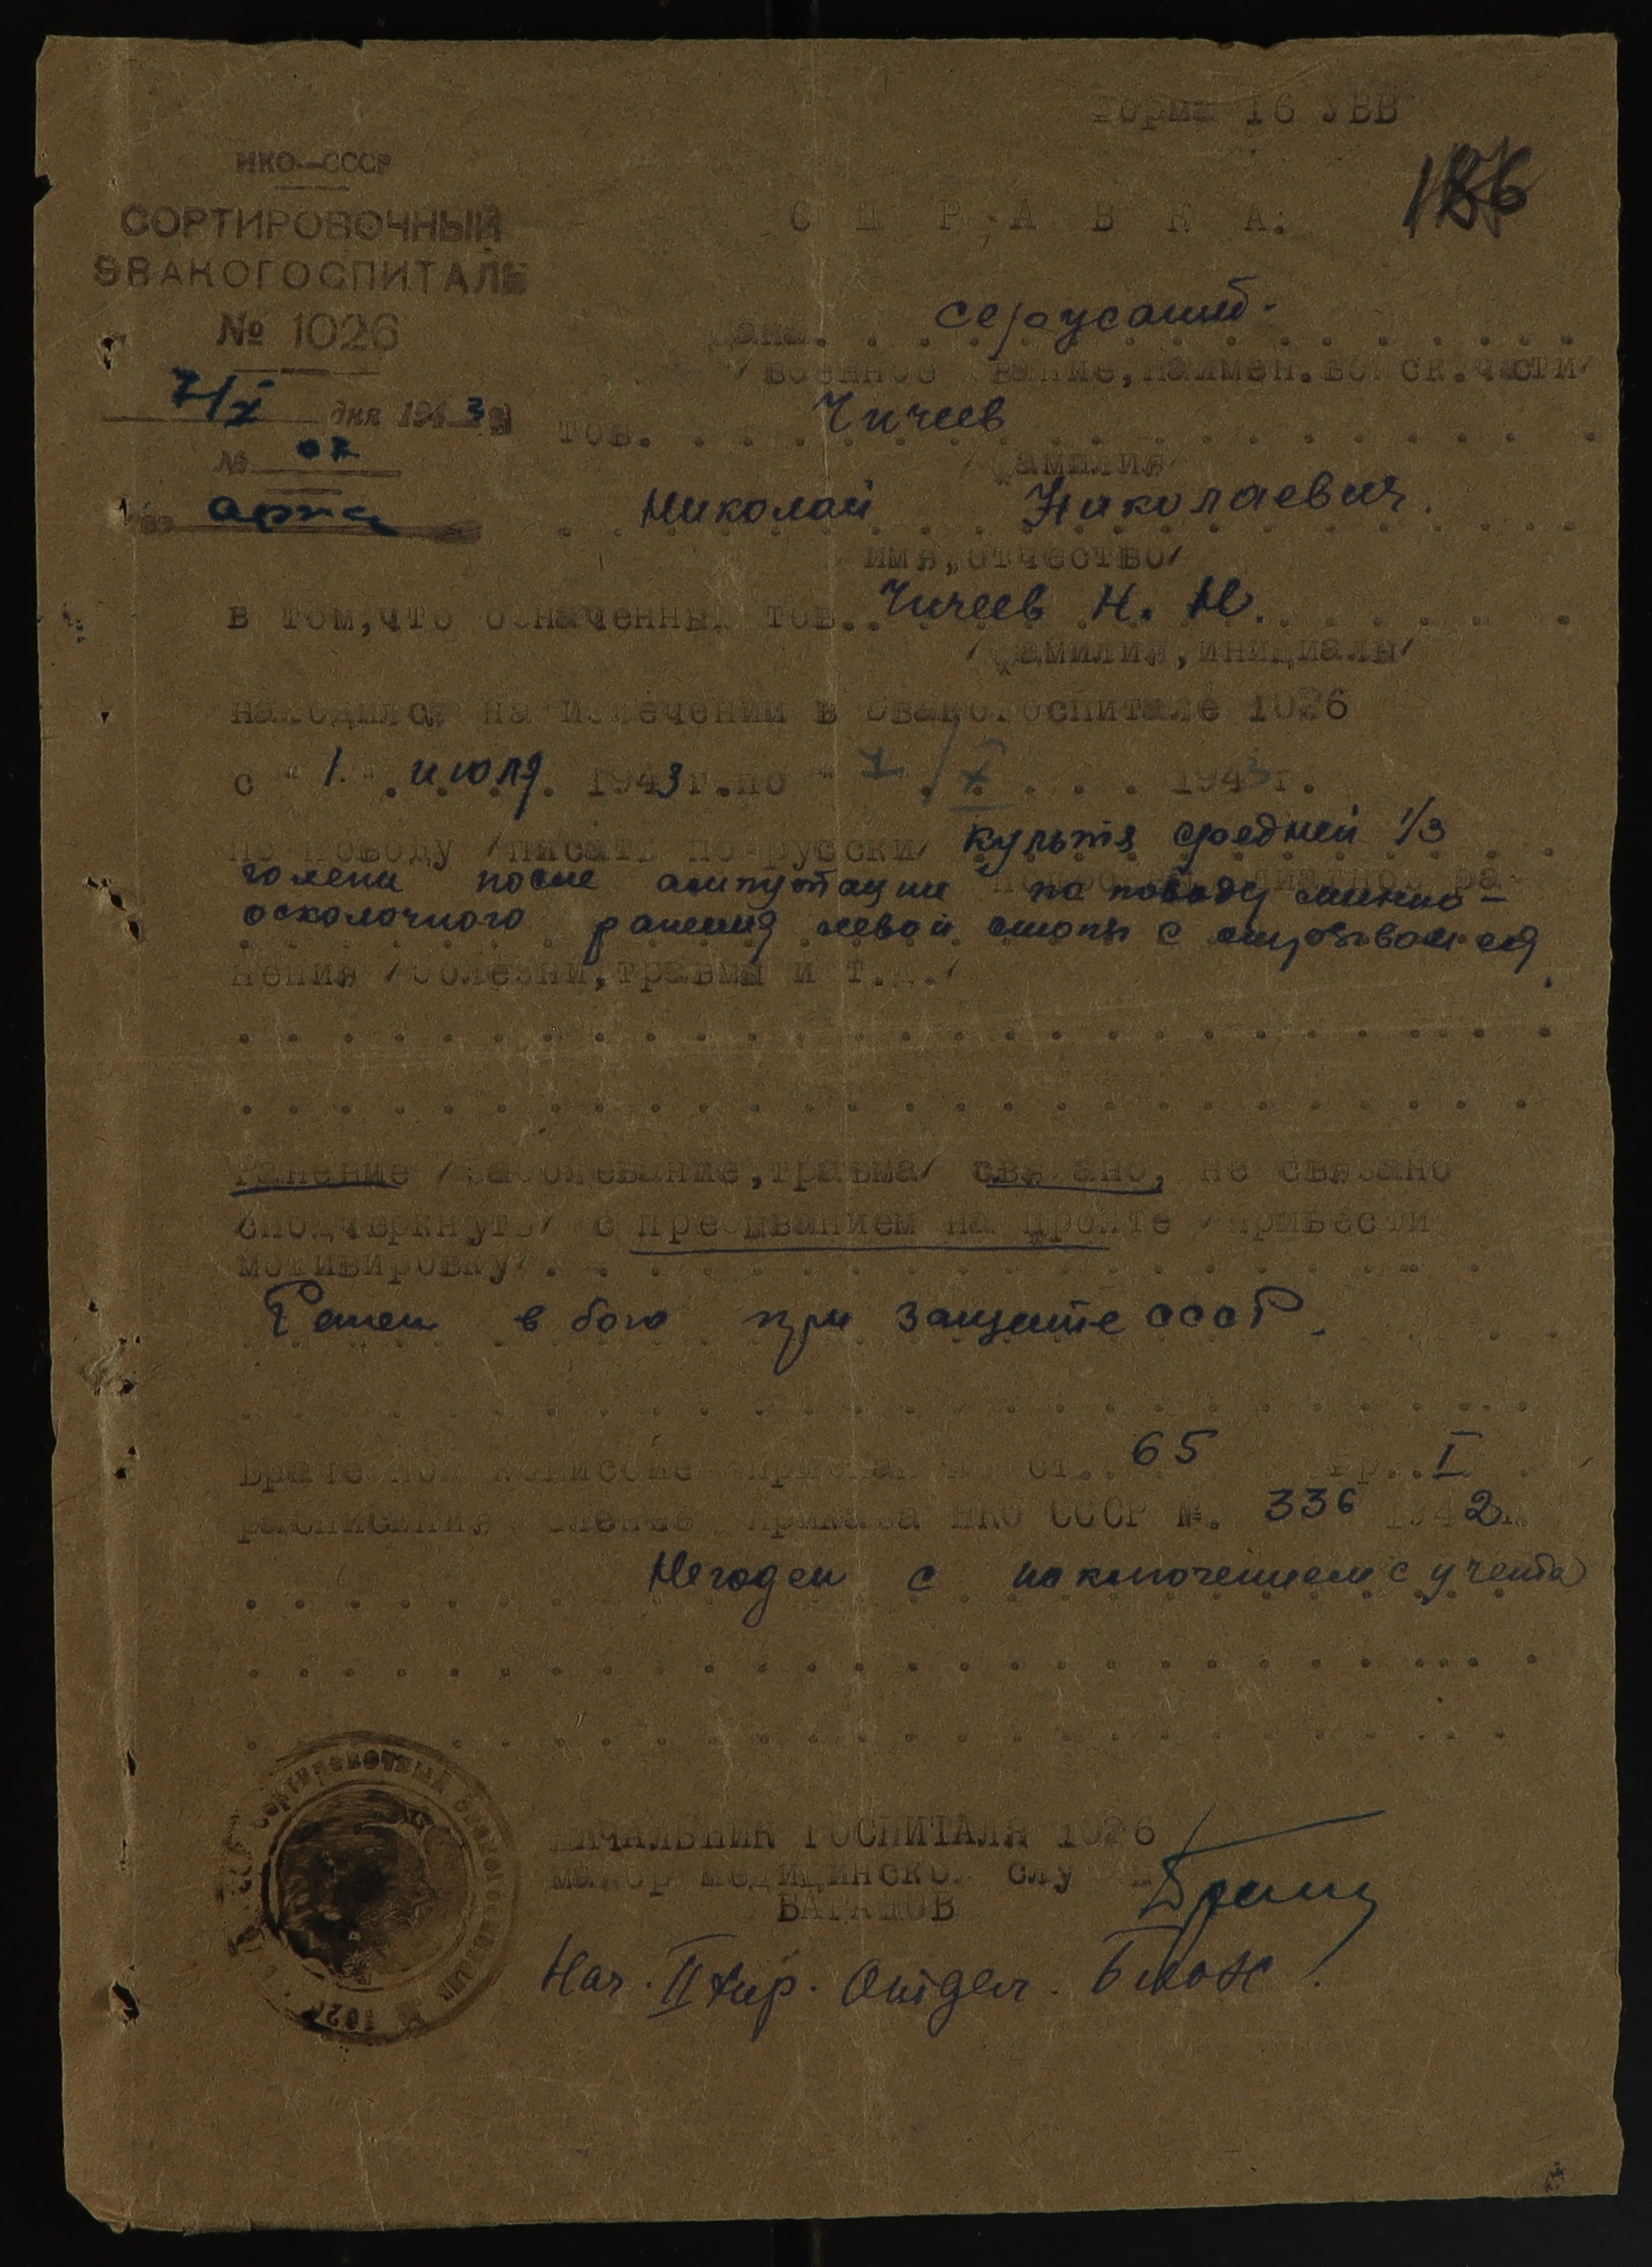 Форма 16 УВВ
186
НКО—СССР
СОРТИРОВОЧНЫЙ
ЭВАКОГОСПИТАЛЬ
№ 1026
7/X дня 1943 г
№ 07
С П Р А В К А:
Дана. сержант
/военное звание, наимен. войск. части/
тов. Чичеев
/фамилия/
Николай Николаевич.
имя, отчество/
в том, что означенный тов. Чичеев Н. Н.
/фамилия, инициалы/
находился на излечении в эвакогоспитале 1026
с "1." июля 1943 г. по "7/X 1943 г.
по поводу /писать по-русски/ культя средней 1/3
голени после ампутации по поводу минно-
осколочного ранения левой стопы с
нения /болезни, травмы и т.д./
Ранение /заболевание, травма/ связано, не связано
/подчеркнуть/ с пребыванием на фронте /привести
мотивировку/.
Ранен в бою при защите СССР.
Врачебной комиссие признан по ст. 65 гр. I
расписания приказа НКО СССР №. 336 1942 г.
Негоден с исключением с учета
НАЧАЛЬНИК ГОСПИТАЛЯ 1026
майор медицинской
Нач. II хир. Отдел.